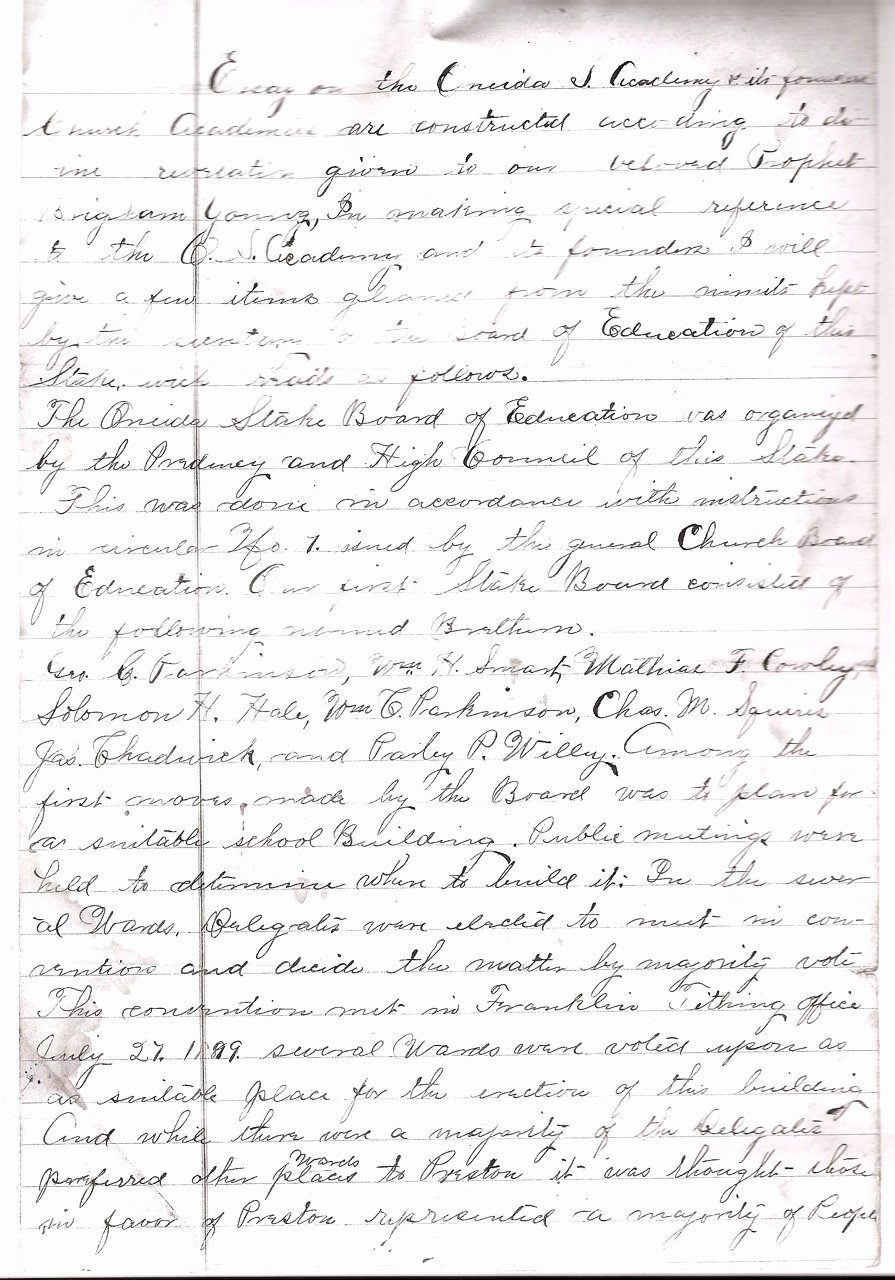 Essay on the Oneida S. Academy & its founders
Church Academies are constructed according to di-
vine revelation given to our beloved Prophet
Brigham Young, In making special reference
to the O. S. Academy and its founders I will
give a few items gleaned from the minits kept
by the of the Board of Education of this
Stake, wich reads as follows.
The Oneida Stake Board of Education was organized
by the and High Council of this Stake.
This was done in accordance with instructions
in circular No. 1. issued by the general Church Board
of Education. Our first Stake Board consisted of
the following named Brethern.
Geo. C. Parkinson, Wm. H. Smart, Mathias F. Cowley,
Solomon H. Hale, Wm C. Parkinson, Chas. M. Squires
Jas. Chadwick, and Parley P. Willey. Among the
first moves made by the Board was to plan for
a suitable school Building. Public meetings were
held to determine where to build it: In the sever
al Wards, Delegates were elected to meet in con-
vention and decide the matter by majority vote
This convention met in Franklin Tithing office
July 27. several Wards were voted upon as
as suitable place for the erection of this building
And while there were a majority of the Delegates
preferred other places Wards to Preston it was thought those
in favor of Preston represented a majority of People